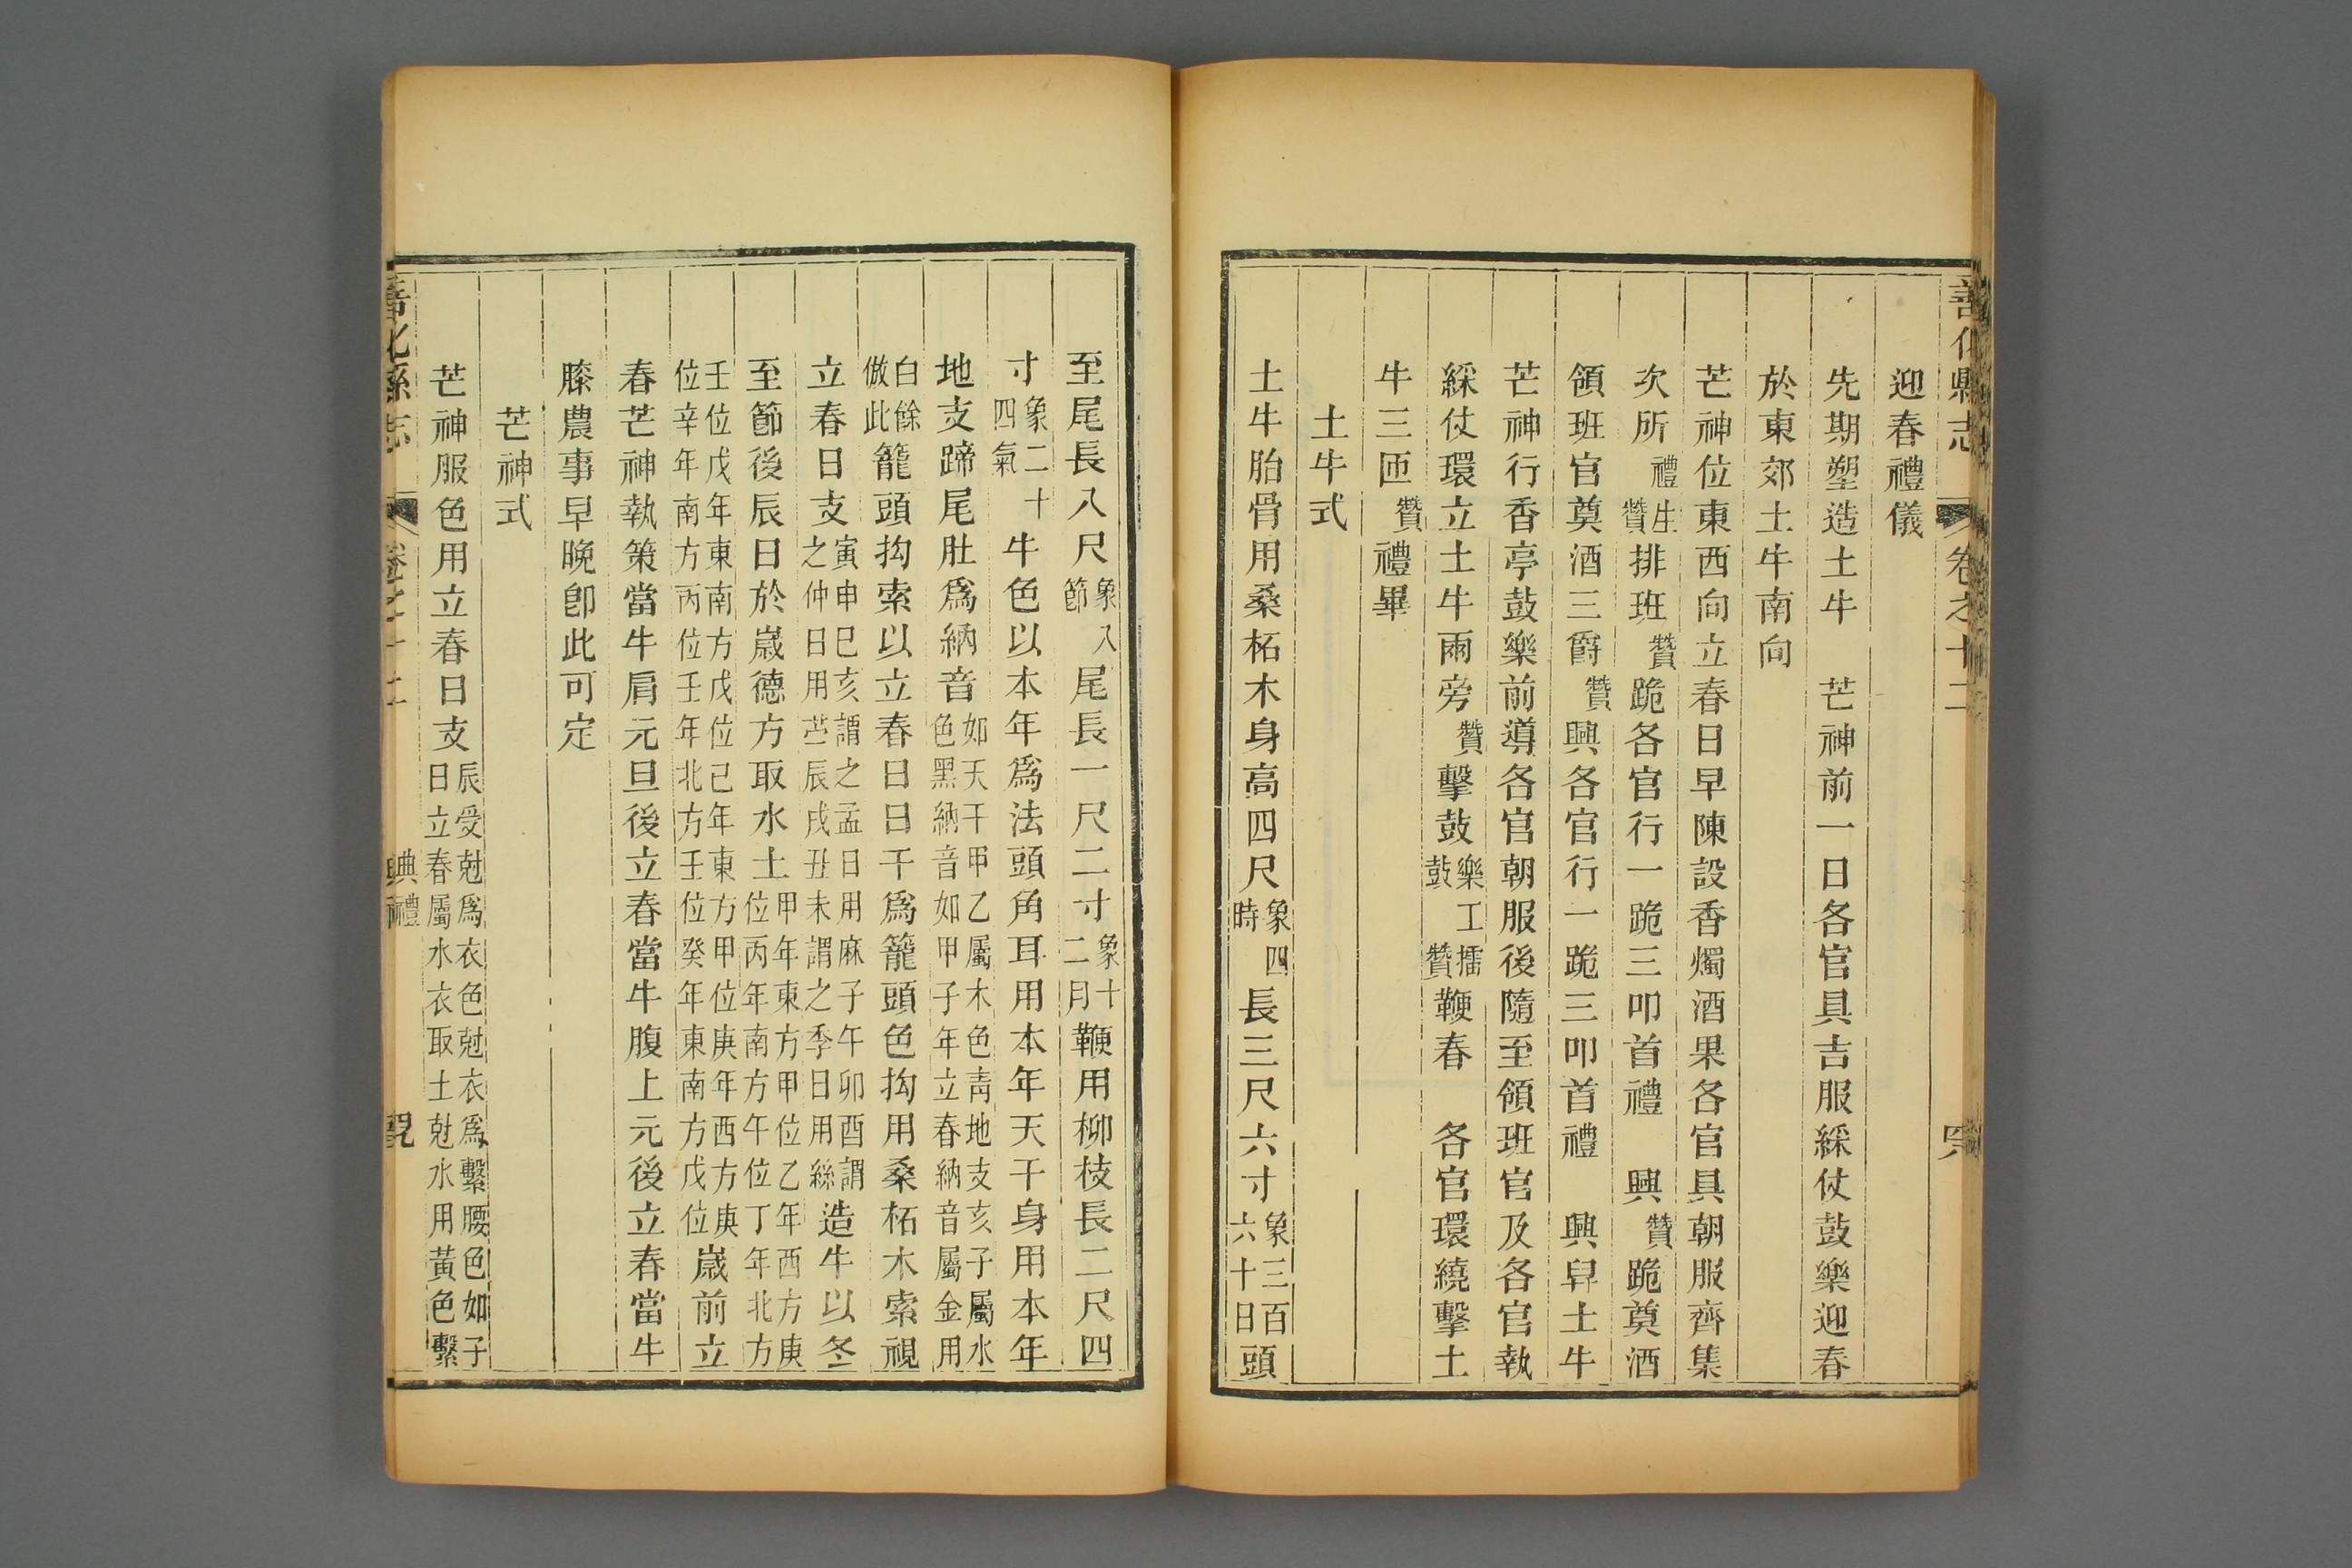 善化縣志 卷之十二
迎春禮儀
先期塑造土牛 芒神前一日各官具吉服綵仗鼓樂迎春
於東郊土牛南向
芒神位東西向立春日早陳設香燭酒果各官具朝服齊集
次所禮生贊排班贊跪各官行一跪三叩首禮 興贊跪奠酒
領班官奠酒三爵贊興各官行一跪三叩首禮 興舁土牛
芒神行香亭鼓樂前導各官朝服後隨至領班官及各官執
綵仗環立土牛兩旁贊擊鼓樂工擂鼓贊鞭春 各官環繞擊土
牛三匝贊禮畢
土牛式
土牛胎骨用桑柘木身高四尺象四時長三尺六寸象三百六十日頭
至尾長八尺象八節尾長一尺二寸象十二月鞭用柳枝長二尺四
寸象二十四氣牛色以本年爲法頭角耳用本年天干身用本年
地支蹄尾肚爲納音如天干甲乙屬木色靑地支亥子屬水色黑納音如甲子年立春納音屬金用
白餘倣此籠頭拘索以立春日日干爲籠頭色拘用桑柘木索視
立春日支寅申巳亥謂之孟日用麻子午卯酉謂之仲日用苎辰戌丑未謂之季日用絲造牛以冬
至節後辰日於歲德方取水土甲年東方甲位乙年西方庚位丙年南方午位丁年北方
壬位戊年東南方戊位己年東方甲位庚年西方庚位辛年南方丙位壬年北方壬位癸年東南方戊位歲前立
春芒神執策當牛肩元旦後立春當牛腹上元後立春當牛
膝農事早晚卽此可定
芒神式
芒神服色用立春日支辰受尅爲衣色尅衣爲繫腰色如子日立春屬水衣取土尅水用黃色繫
善化縣志 卷之十二 典禮